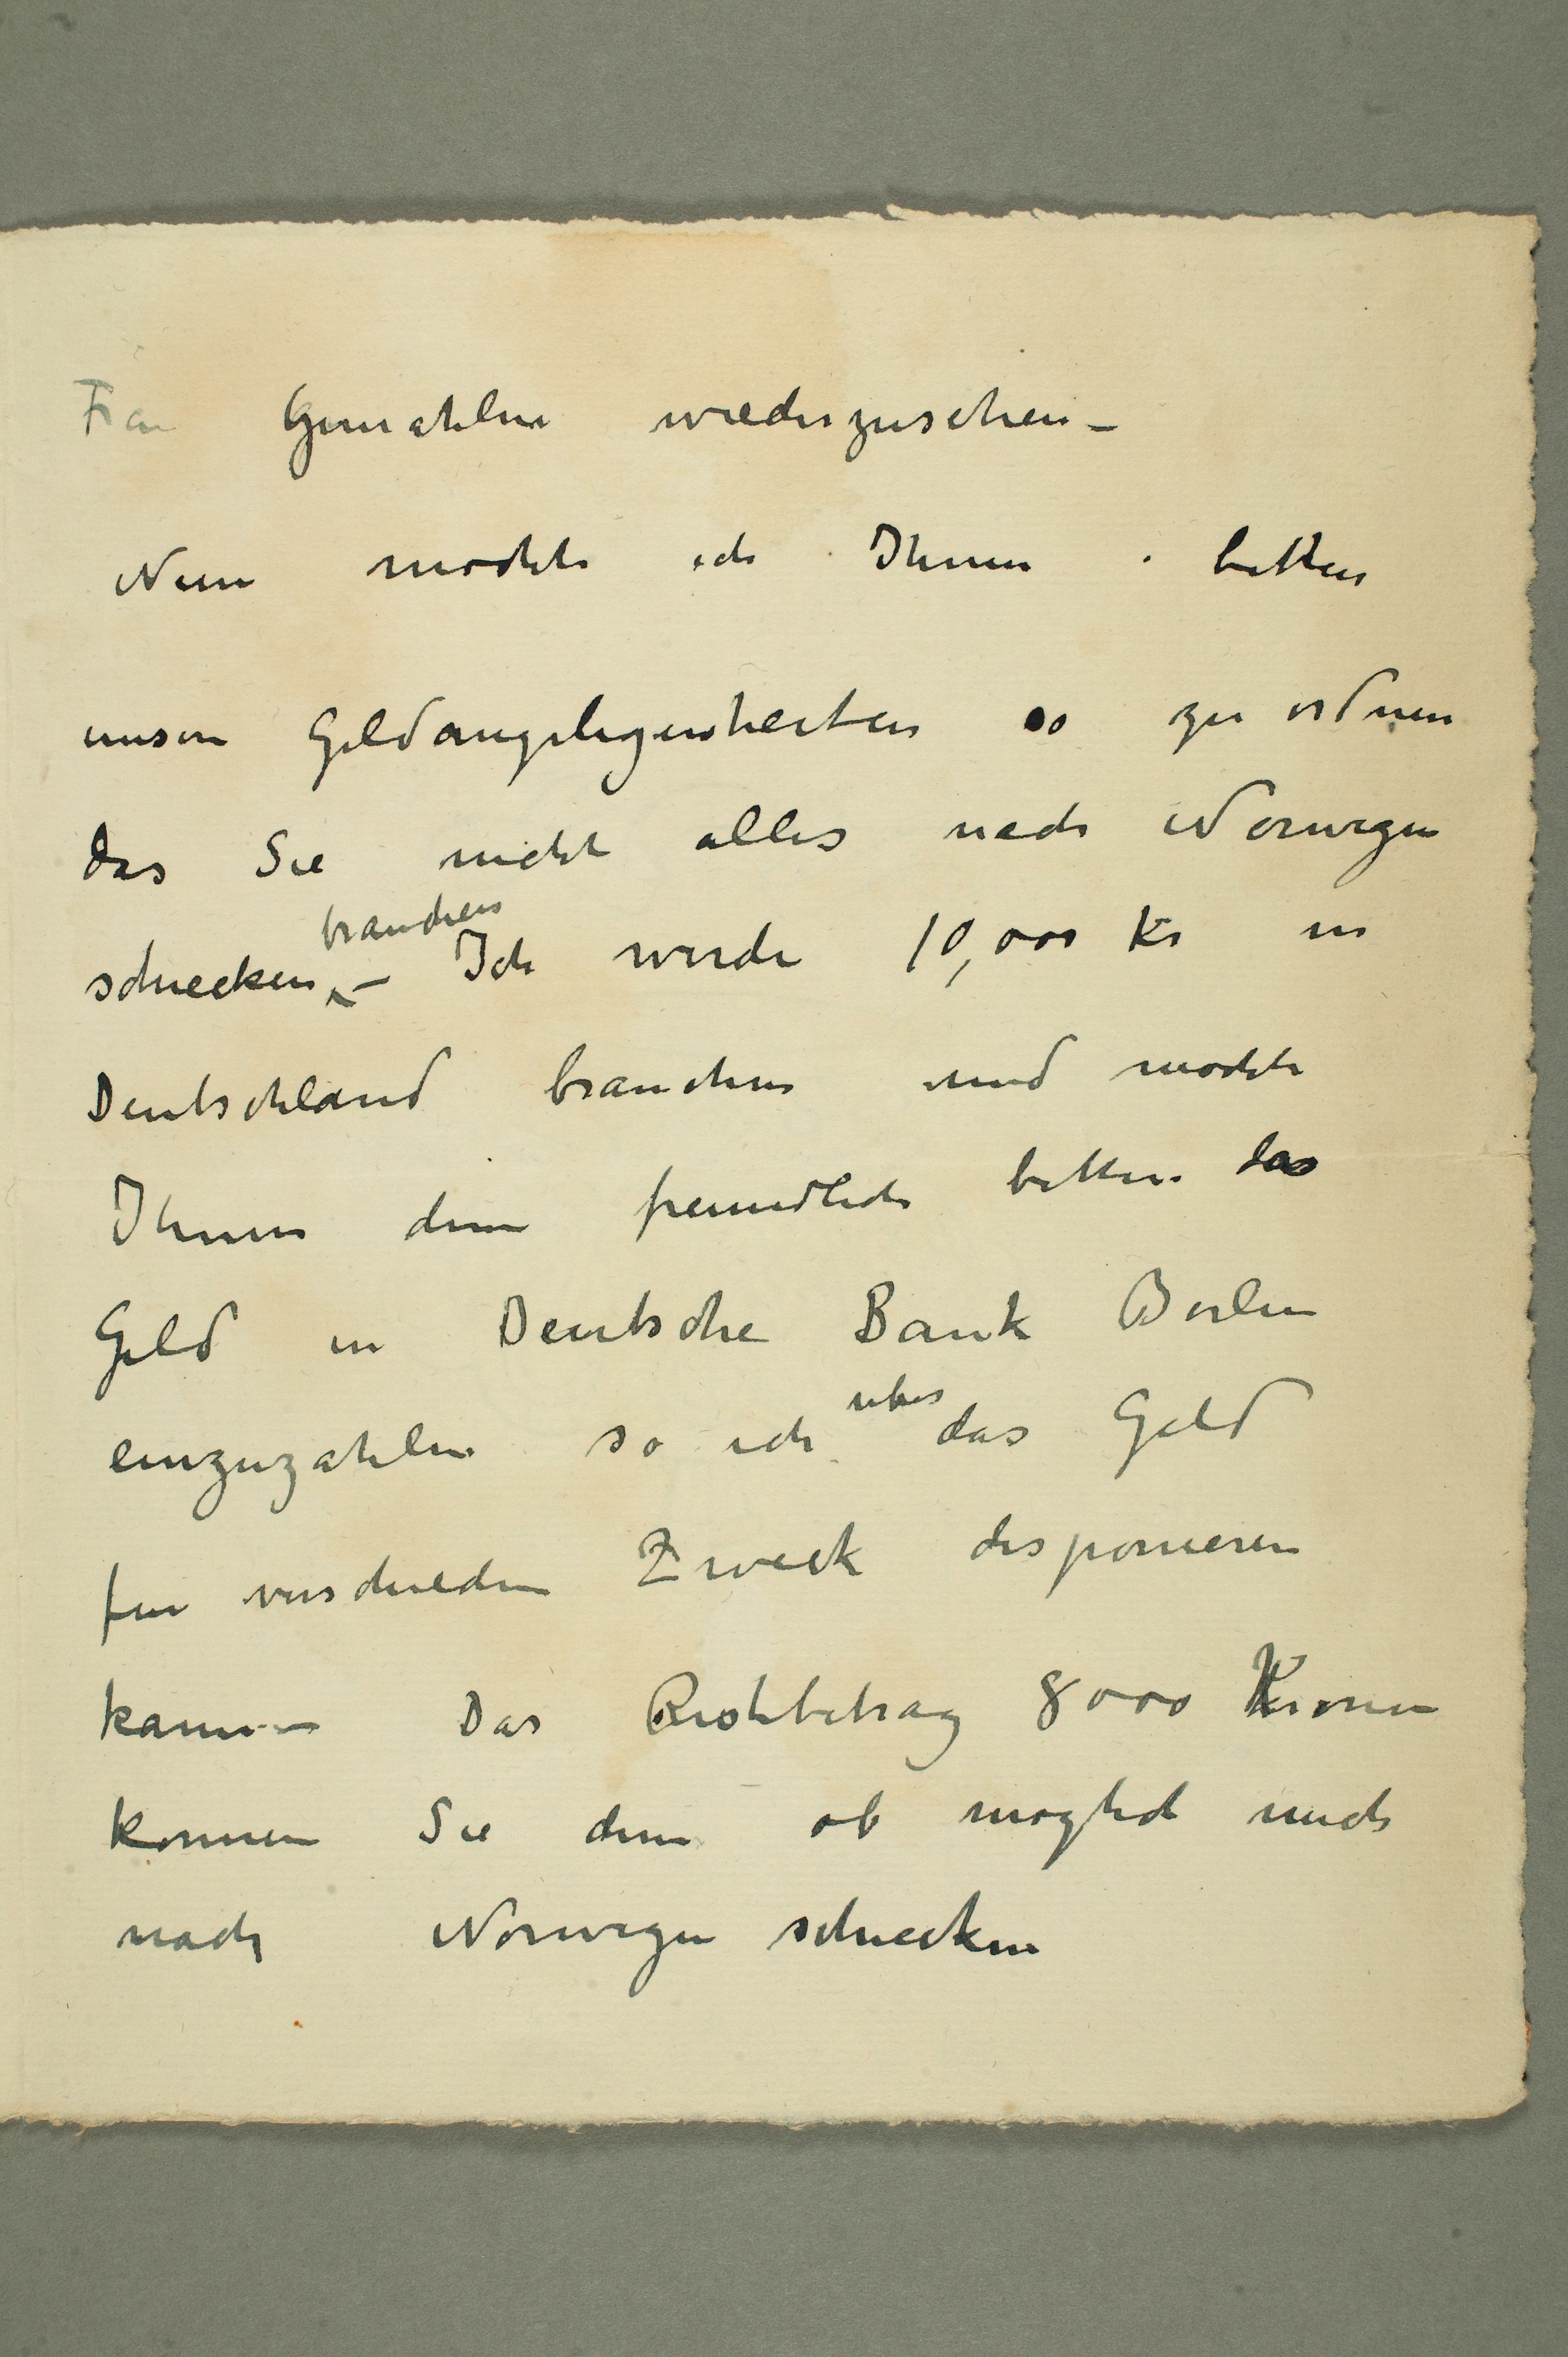 Frau Gemahlin wiederzusehen –
Nun möchte ich Ihnen bitten
unsere Geldangelegenheiten so zu ordnen
das Sie nicht alles nach Norwegen
schiecken brauchen – Ich werde 10,000 Kr in
Deutschland brauchen und mochte
Ihnen denn freundlich bitten das
Geld in Deutsche Bank Berlin
einzuzahlen so ich über das Geld
fur verschieden Zweck disponieren
kann – Das Restbetrag 8000 Kronen
konnen Sie denn ob moglich mich
nach Norwegen schiecken